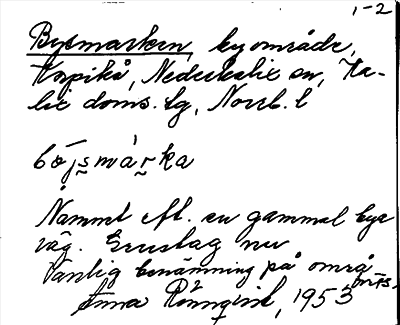 1-2
Bysmarken, byområde,
Korpikå, Nederkalix sn, Ka-
lix doms. lg, Norrb. l
bȱjsmàrka
Namnt eft. en gammal bya
väg. Grustag nu
Vanlig benämning på områ
Anna Rönnqvist, 1953